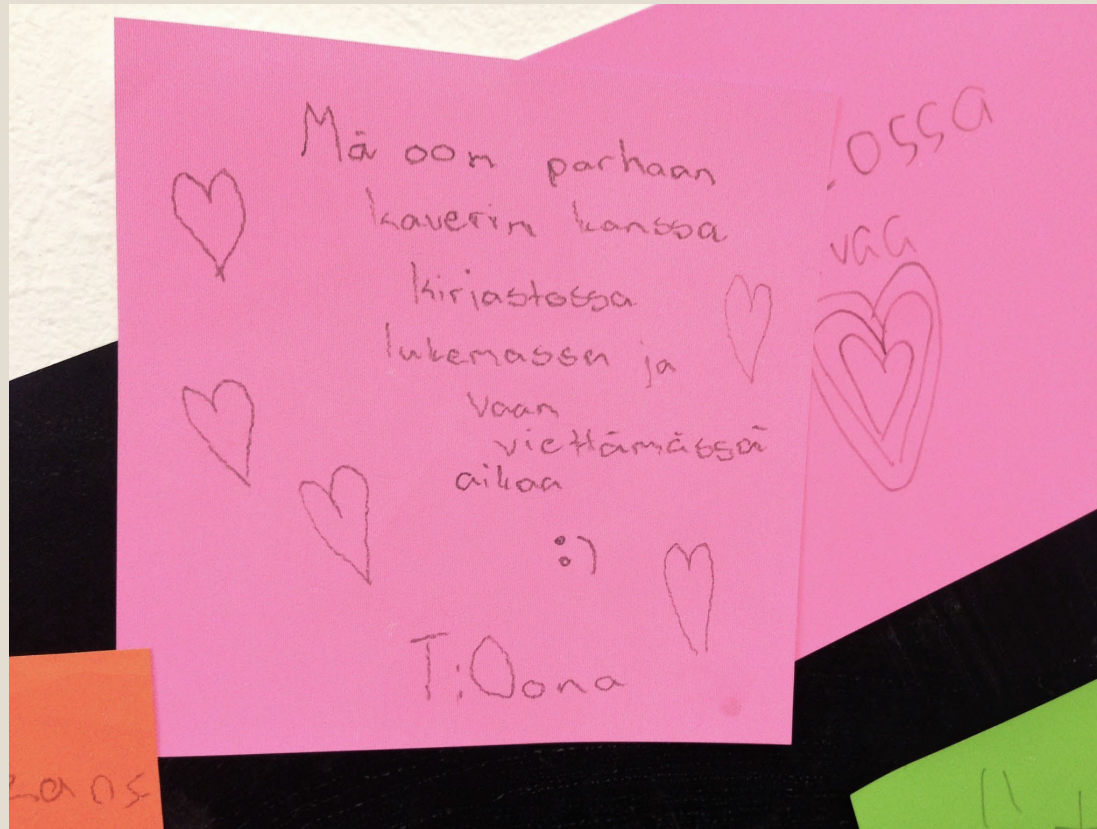 Mä oon parhaan
kaverin kanssa
kirjastossa
lukemassa ja
vaan
viettämässä
aikaa
:)
T:Oona